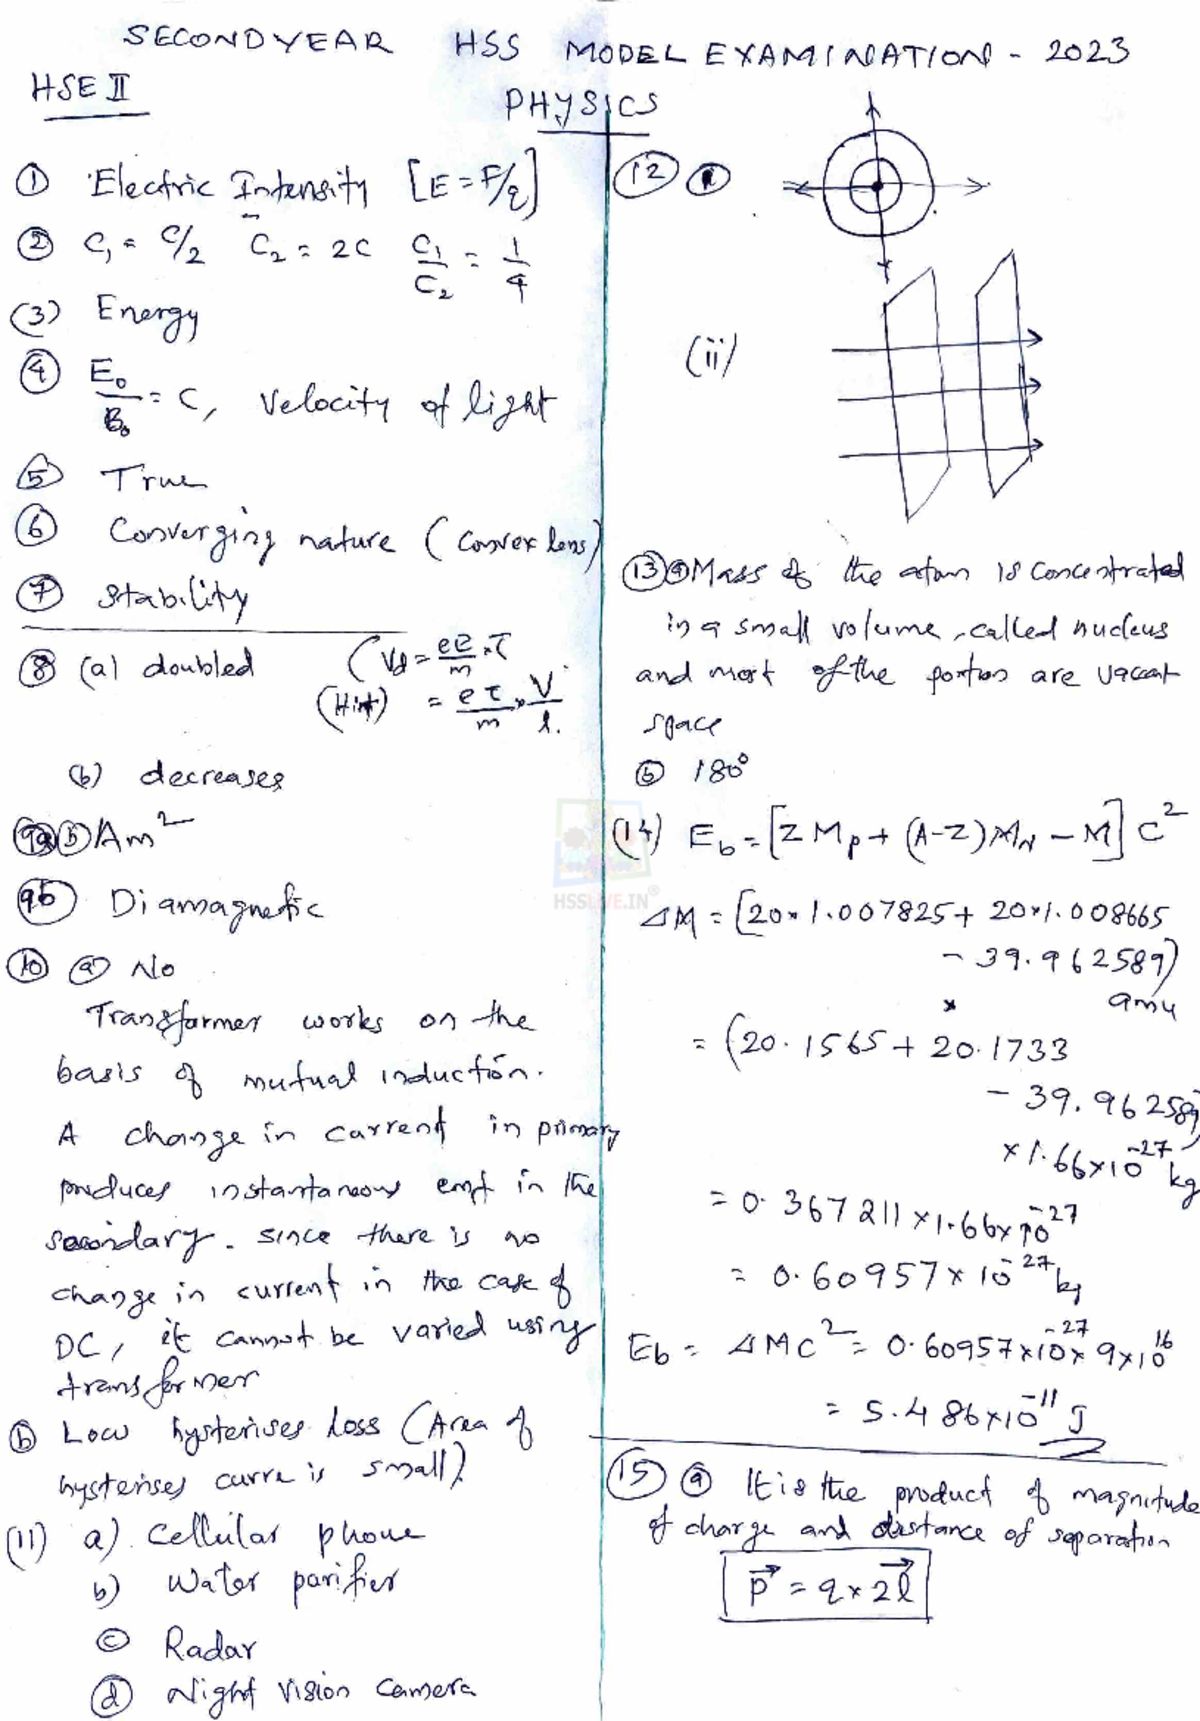 SECONDYEAR HSS MODEL EXAMINATION - 2023
HSE II
PHYSICS
① Electric Intensity [E = F/q]
② C₁ = C/2 C₂ = 2C C₁/C₂ = 1/4
(3) Energy
④ E₀/B₀ = C, Velocity of light
⑤ True
⑥ Converging nature (Convex lens)
⑦ Stability
⑧ (a) doubled (Vd = eE/m × τ
(Hint) = eτ/m × V/l.
(b) decreases
Am²
9b Diamagnetic
⑩ ⓐ No
Transformer works on the
basis of mutual induction.
A change in current in primary
produces instantaneous emf in the
secondary. Since there is no
change in current in the case of
DC, it cannot be varied using
transformer
ⓑ Low hysterises loss (Area of
hysterises curve is small)
(11) a). Cellular phone
b) Water parifier
ⓒ Radar
ⓓ Night Vision Camera
⑫ ⓘ
(ii)
⑬ ⓐ Mass of the atom is concentrated
in a small volume, called nucleus
and most of the portion are vacant
space
ⓑ 180°
(14) Eb = [Z Mp + (A-Z) MN - M] C²
ΔM = [20 × 1.007825 + 20 × 1.008665
- 39.962589)
× amu
= (20.1565 + 20.1733
- 39.962589)
× 1.66 × 10⁻²⁷ kg
= 0.367211 × 1.66 × 10⁻²⁷
= 0.60957 × 10⁻²⁷ kg
Eb = ΔMC² = 0.60957 × 10⁻²⁷ × 9 × 10¹⁶
= 5.486 × 10⁻¹¹ J
⑮ ⓐ It is the product of magnitude
of charge and distance of separation
p⃗ = q × 2l⃗
HSSLIVE.IN®